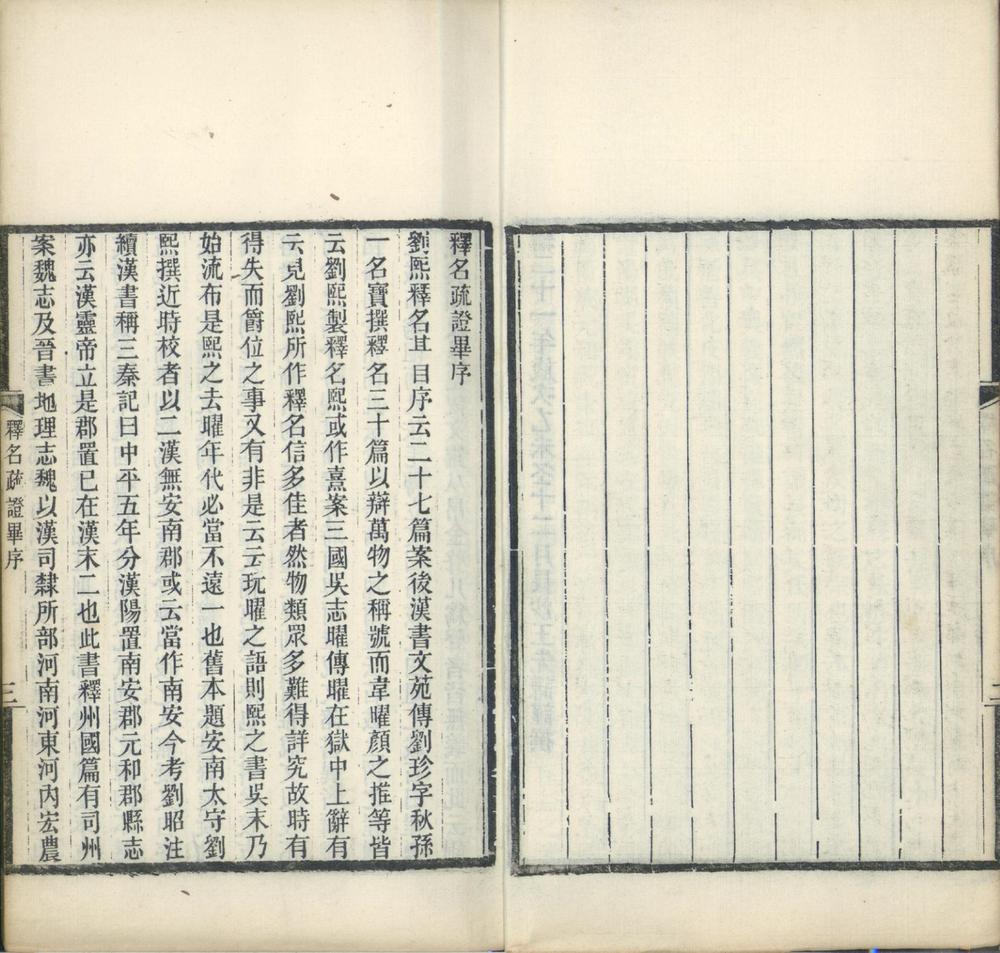 釋名疏證畢序
劉熙釋名其目序云二十七篇案後漢書文苑傳劉珍字秋孫
一名寶撰釋名三十篇以辯萬物之稱號而韋曜顏之推等皆
云劉熙製釋名熙或作熹案三國吳志曜傳曜在獄中上辭有
云見劉熙所作釋名信多佳者然物類眾多難得詳究故時有
得失而爵位之事又有非是云云玩曜之語則熙之書吳末乃
始流布是熙之去曜年代必當不遠一也舊本題安南太守劉
熙撰近時校者以二漢無安南郡或云當作南安今考劉昭注
續漢書稱三秦記曰中平五年分漢陽置南安郡元和郡縣志
亦云漢靈帝立是郡置已在漢末二也此書釋州國篇有司州
案魏志及晉書地理志魏以漢司隸所部河南河東河內宏農
釋名疏證畢序
三